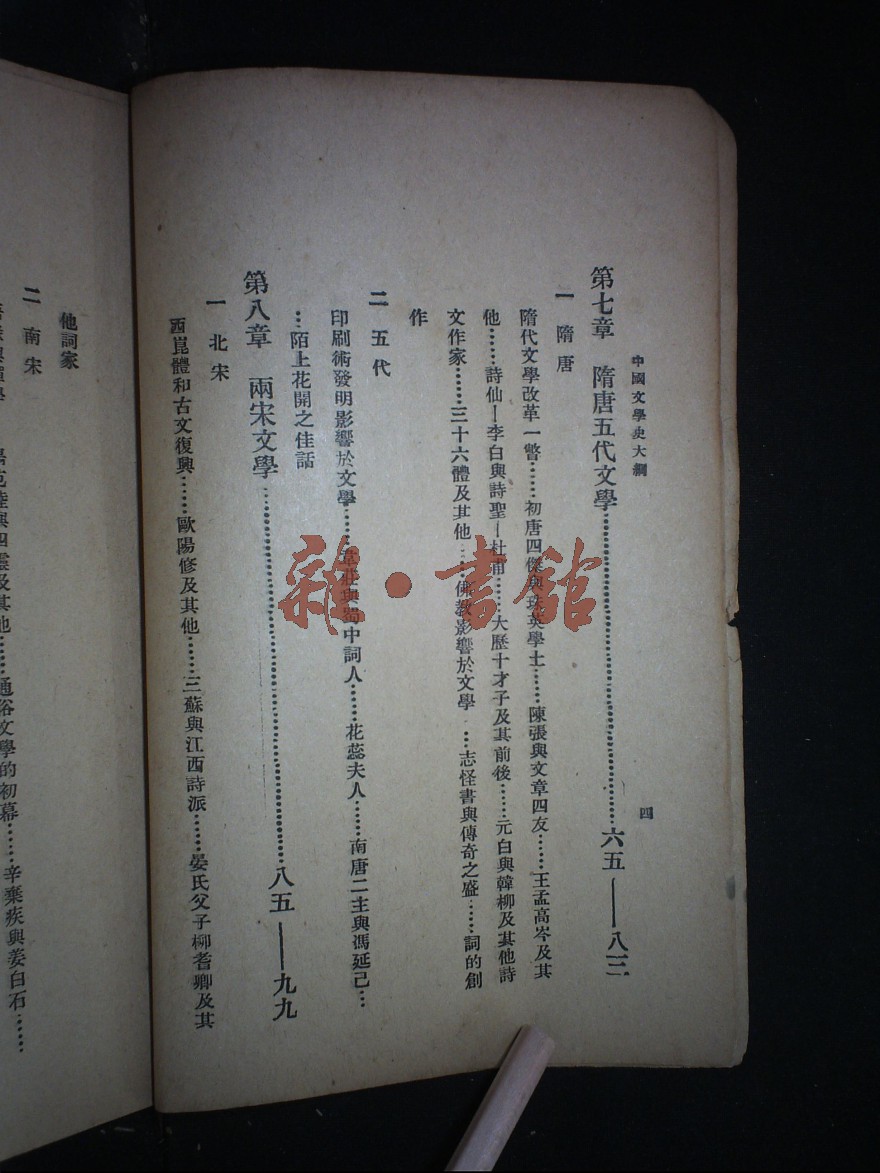 中國文學史大綱
四
第七章　隋唐五代文學……六五——八三
一　隋唐
隋代文學改革一瞥……初唐四傑與珠英學士……陳張與文章四友……王孟高岑及其
他……詩仙—李白與詩聖—杜甫……大歷十才子及其前後……元白與韓柳及其他詩
文作家……三十六體及其他……佛教影響於文學……志怪書與傳奇之盛……詞的創
作
二　五代
印刷術發明影響於文學……韋莊與蜀中詞人……花蕊夫人……南唐二主與馮延己…
…陌上花開之佳話
第八章　兩宋文學……八五——九九
一　北宋
西崑體和古文復興……歐陽修及其他……三蘇與江西詩派……晏氏父子柳耆卿及其
他詞家
二　南宋
與四靈及其他……通俗文學的初幕……辛棄疾與姜白石……
雜·書館